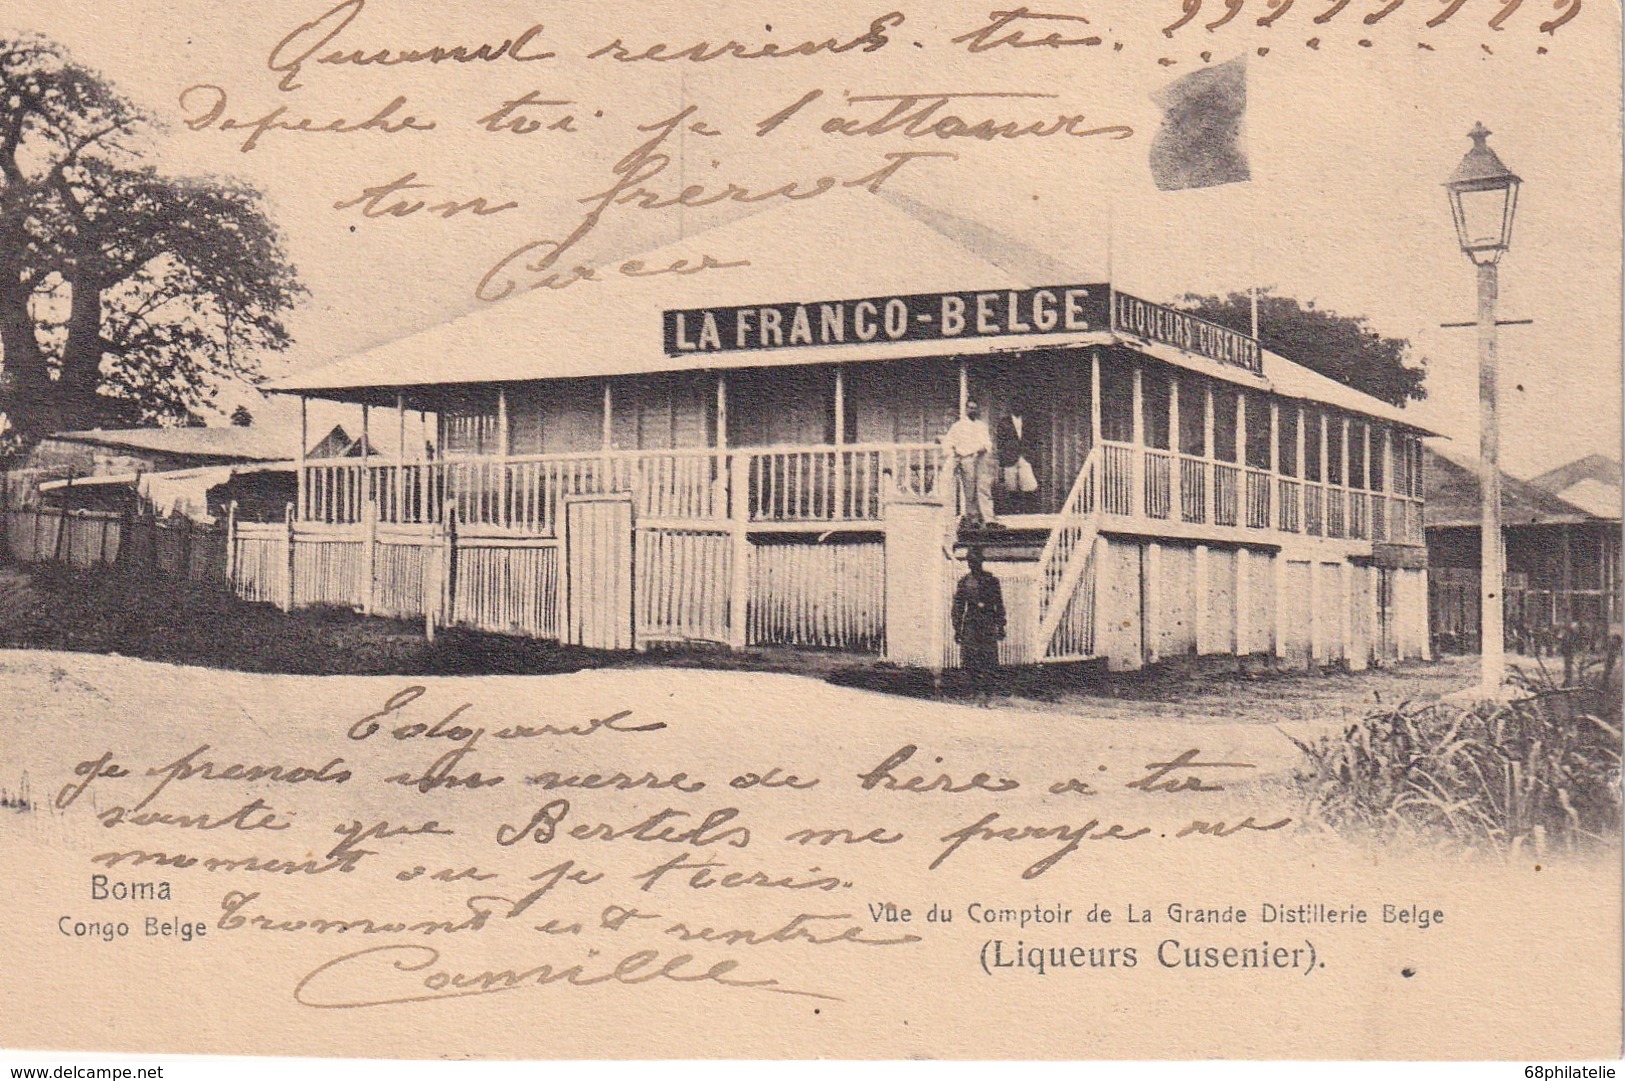 Quand reviens-tu. ? ? ? ? ? ? ? ? ?
Depeche toi je l'attanvs
ton frériot
LA FRANCO-BELGE
LIQUEURS CUSENIER
Edgard
Je prends un verre de bière a ta
santé que Bertels me paye au
moment ou je t'ecris.
Tromont est rentre
Camille
Boma
Congo Belge
Vue du Comptoir de La Grande Distillerie Belge
(Liqueurs Cusenier).
delcampe.net
68philatelie